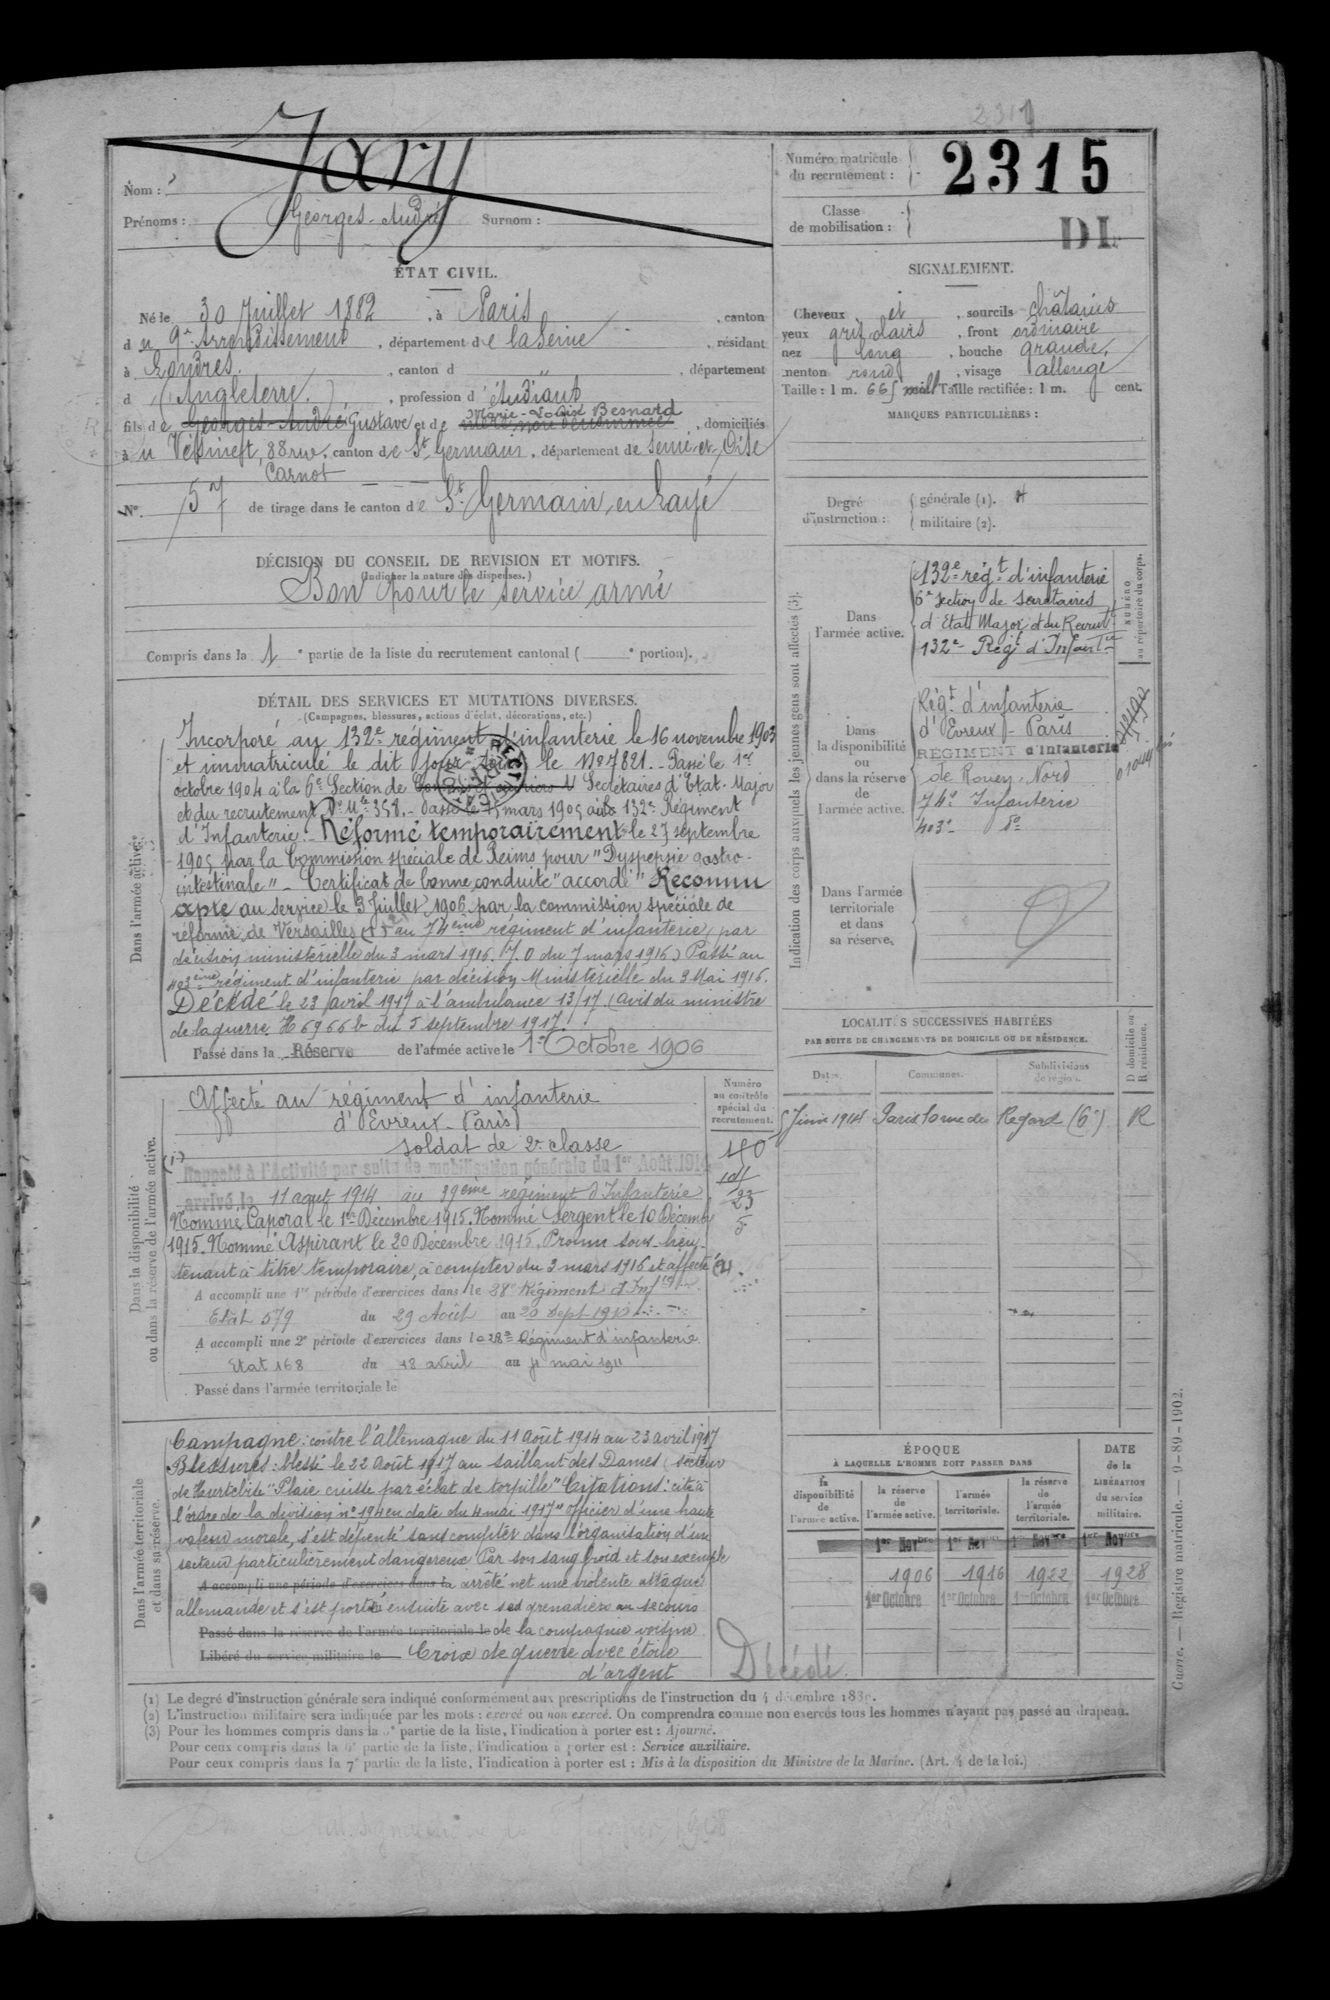 2319
Nom : Jary
Prénoms : Georges-André Surnom :
Numéro matricule du recrutement : 2315
Classe de mobilisation :
DL
ÉTAT CIVIL.
Né le 30 Juillet 1882, à Paris, canton
du 9e Arrondissement, département de la Seine, résidant
à Londres, canton d ", département
d (Angleterre.), profession d'étudiant
Marie-Louise Besnard
fils de Georges-André Gustave et de, domiciliés
au Vésinet, 88 rue, canton de St Germain, département de Seine et Oise
Carnot
No. 57 de tirage dans le canton de St Germain en Laye
DÉCISION DU CONSEIL DE REVISION ET MOTIFS.
(Indiquer la nature des dispenses.)
Bon pour le service armé
Compris dans la 1e partie de la liste du recrutement cantonal ( e portion).
DÉTAIL DES SERVICES ET MUTATIONS DIVERSES.
(Campagnes, blessures, actions d'éclat, décorations, etc.)
Dans l'armée active.
Incorporé au 132e régiment d'infanterie le 16 novembre 1903
et immatriculé le dit jour sous le No 7821. - Passé le 1er
octobre 1904 à la 6e Section de Secrétaires d'Etat-Major
et du recrutement, No Mle 358. - Passé le 15 mars 1905 au 132e Régiment
d'Infanterie. - Réformé temporairement le 27 septembre
1905 par la Commission spéciale de Reims pour "Dyspepsie gastro-
intestinale" - Certificat de bonne conduite "accordé" Reconnu
apte au service le 3 Juillet 1906 par la commission spéciale de
réforme de Versailles au 74ème régiment d'infanterie, par
décision ministérielle du 3 mars 1916. (J.O du 7 mars 1916) Passé au
403ème régiment d'infanterie par décision Ministérielle du 3 Mai 1916.
Décédé le 23 avril 1917 à l'ambulance 13/17. (avis du ministre
de la guerre. H 6966 b du 5 septembre 1917.)
Passé dans la Réserve de l'armée active le 1er Octobre 1906
Numéro au contrôle spécial du recrutement.
Dans la disponibilité ou dans la réserve de l'armée active.
Affecté au régiment d'infanterie
d'Evreux-Paris
soldat de 2e classe
Rappelé à l'Activité par suite de mobilisation générale du 1er Août 1914
arrivé le 11 aout 1914 au 39ème régiment d'Infanterie
Nommé Caporal le 1er Décembre 1915. Nommé Sergent le 10 Décembre
1915. Nommé Aspirant le 20 Décembre 1915. Promu sous-lieu-
tenant à titre temporaire, à compter du 3 mars 1916 et affecté
A accompli une 1re période d'exercices dans le 28e Régiment d'Inf
Etat 579 du 29 Août au 20 Sept 1910
A accompli une 2e période d'exercices dans le 28e Régiment d'infanterie
Etat 168 du 18 avril au 4 mai 1911
Passé dans l'armée territoriale le
Dans l'armée territoriale et dans sa réserve.
Campagne : contre l'allemagne du 11 août 1914 au 23 avril 1917
Blessures : blessé le 22 Août 1917 au saillant des Dames (secteur
de Heurtebise "Plaie cuisse par éclat de torpille" Citations : cité à
l'ordre de la division no 194 en date du 4 mai 1917 "officier d'une haute
valeur morale, s'est dépensé sans compter dans l'organisation d'un
secteur particulièrement dangereux Par son sang froid et son exemple
A accompli une période d'exercices dans la arrêté net une violente attaque
allemande et s'est porté ensuite avec ses grenadiers au secours
Passé dans la réserve de l'armée territoriale le de la compagnie voisine
Libéré du service militaire le Croix de guerre avec étoile
d'argent
Décédé.
SIGNALEMENT.
Cheveux et, sourcils châtains
yeux gris clairs, front ordinaire
nez long, bouche grande,
menton rond, visage allongé
Taille : 1 m. 665 mill Taille rectifiée : 1 m. cent.
MARQUES PARTICULIÈRES :
Degré d'instruction : générale (1).
militaire (2).
Indication des corps auxquels les jeunes gens sont affectés (3).
NUMÉRO au répertoire du corps.
Dans l'armée active.
132e régt d'infanterie
6e section de secrétaires
d'Etat Major et du Recrut
132e Régt d'Infantie
Dans la disponibilité ou dans la réserve de l'armée active.
Régt d'infanterie
d'Evreux-Paris
RÉGIMENT d'Infanterie
de Rouen-Nord
74e Infanterie
403e do
Dans l'armée territoriale et dans sa réserve.
LOCALITÉS SUCCESSIVES HABITÉES
PAR SUITE DE CHANGEMENTS DE DOMICILE OU DE RÉSIDENCE.
Dates. Communes. Subdivisions de région. D domicile ou R résidence.
5 Juin 1914 Paris 10 rue du Regard (6e) R
ÉPOQUE
À LAQUELLE L'HOMME DOIT PASSER DANS
DATE de la LIBÉRATION du service militaire.
la disponibilité de l'armée active. la réserve de l'armée active. l'armée territoriale. la réserve de l'armée territoriale.
1er Novbre 1er Nov 1er Novbre 1er Novbre
1906 1916 1922 1928
1er Octobre 1er Octobre 1er Octobre 1er Octobre
(1) Le degré d'instruction générale sera indiqué conformément aux prescriptions de l'instruction du 4 décembre 1889.
(2) L'instruction militaire sera indiquée par les mots : exercé ou non exercé. On comprendra comme non exercés tous les hommes n'ayant pas passé au drapeau.
(3) Pour les hommes compris dans la 5e partie de la liste, l'indication à porter est : Ajourné.
Pour ceux compris dans la 6e partie de la liste, l'indication à porter est : Service auxiliaire.
Pour ceux compris dans la 7e partie de la liste, l'indication à porter est : Mis à la disposition du Ministre de la Marine. (Art. 4 de la loi.)
Guerre. — Registre matricule. — 9-89-1902.